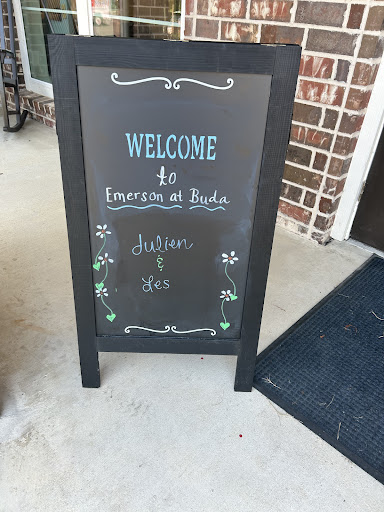 WELCOME
to
Emerson at Buda
Julien
&
Les